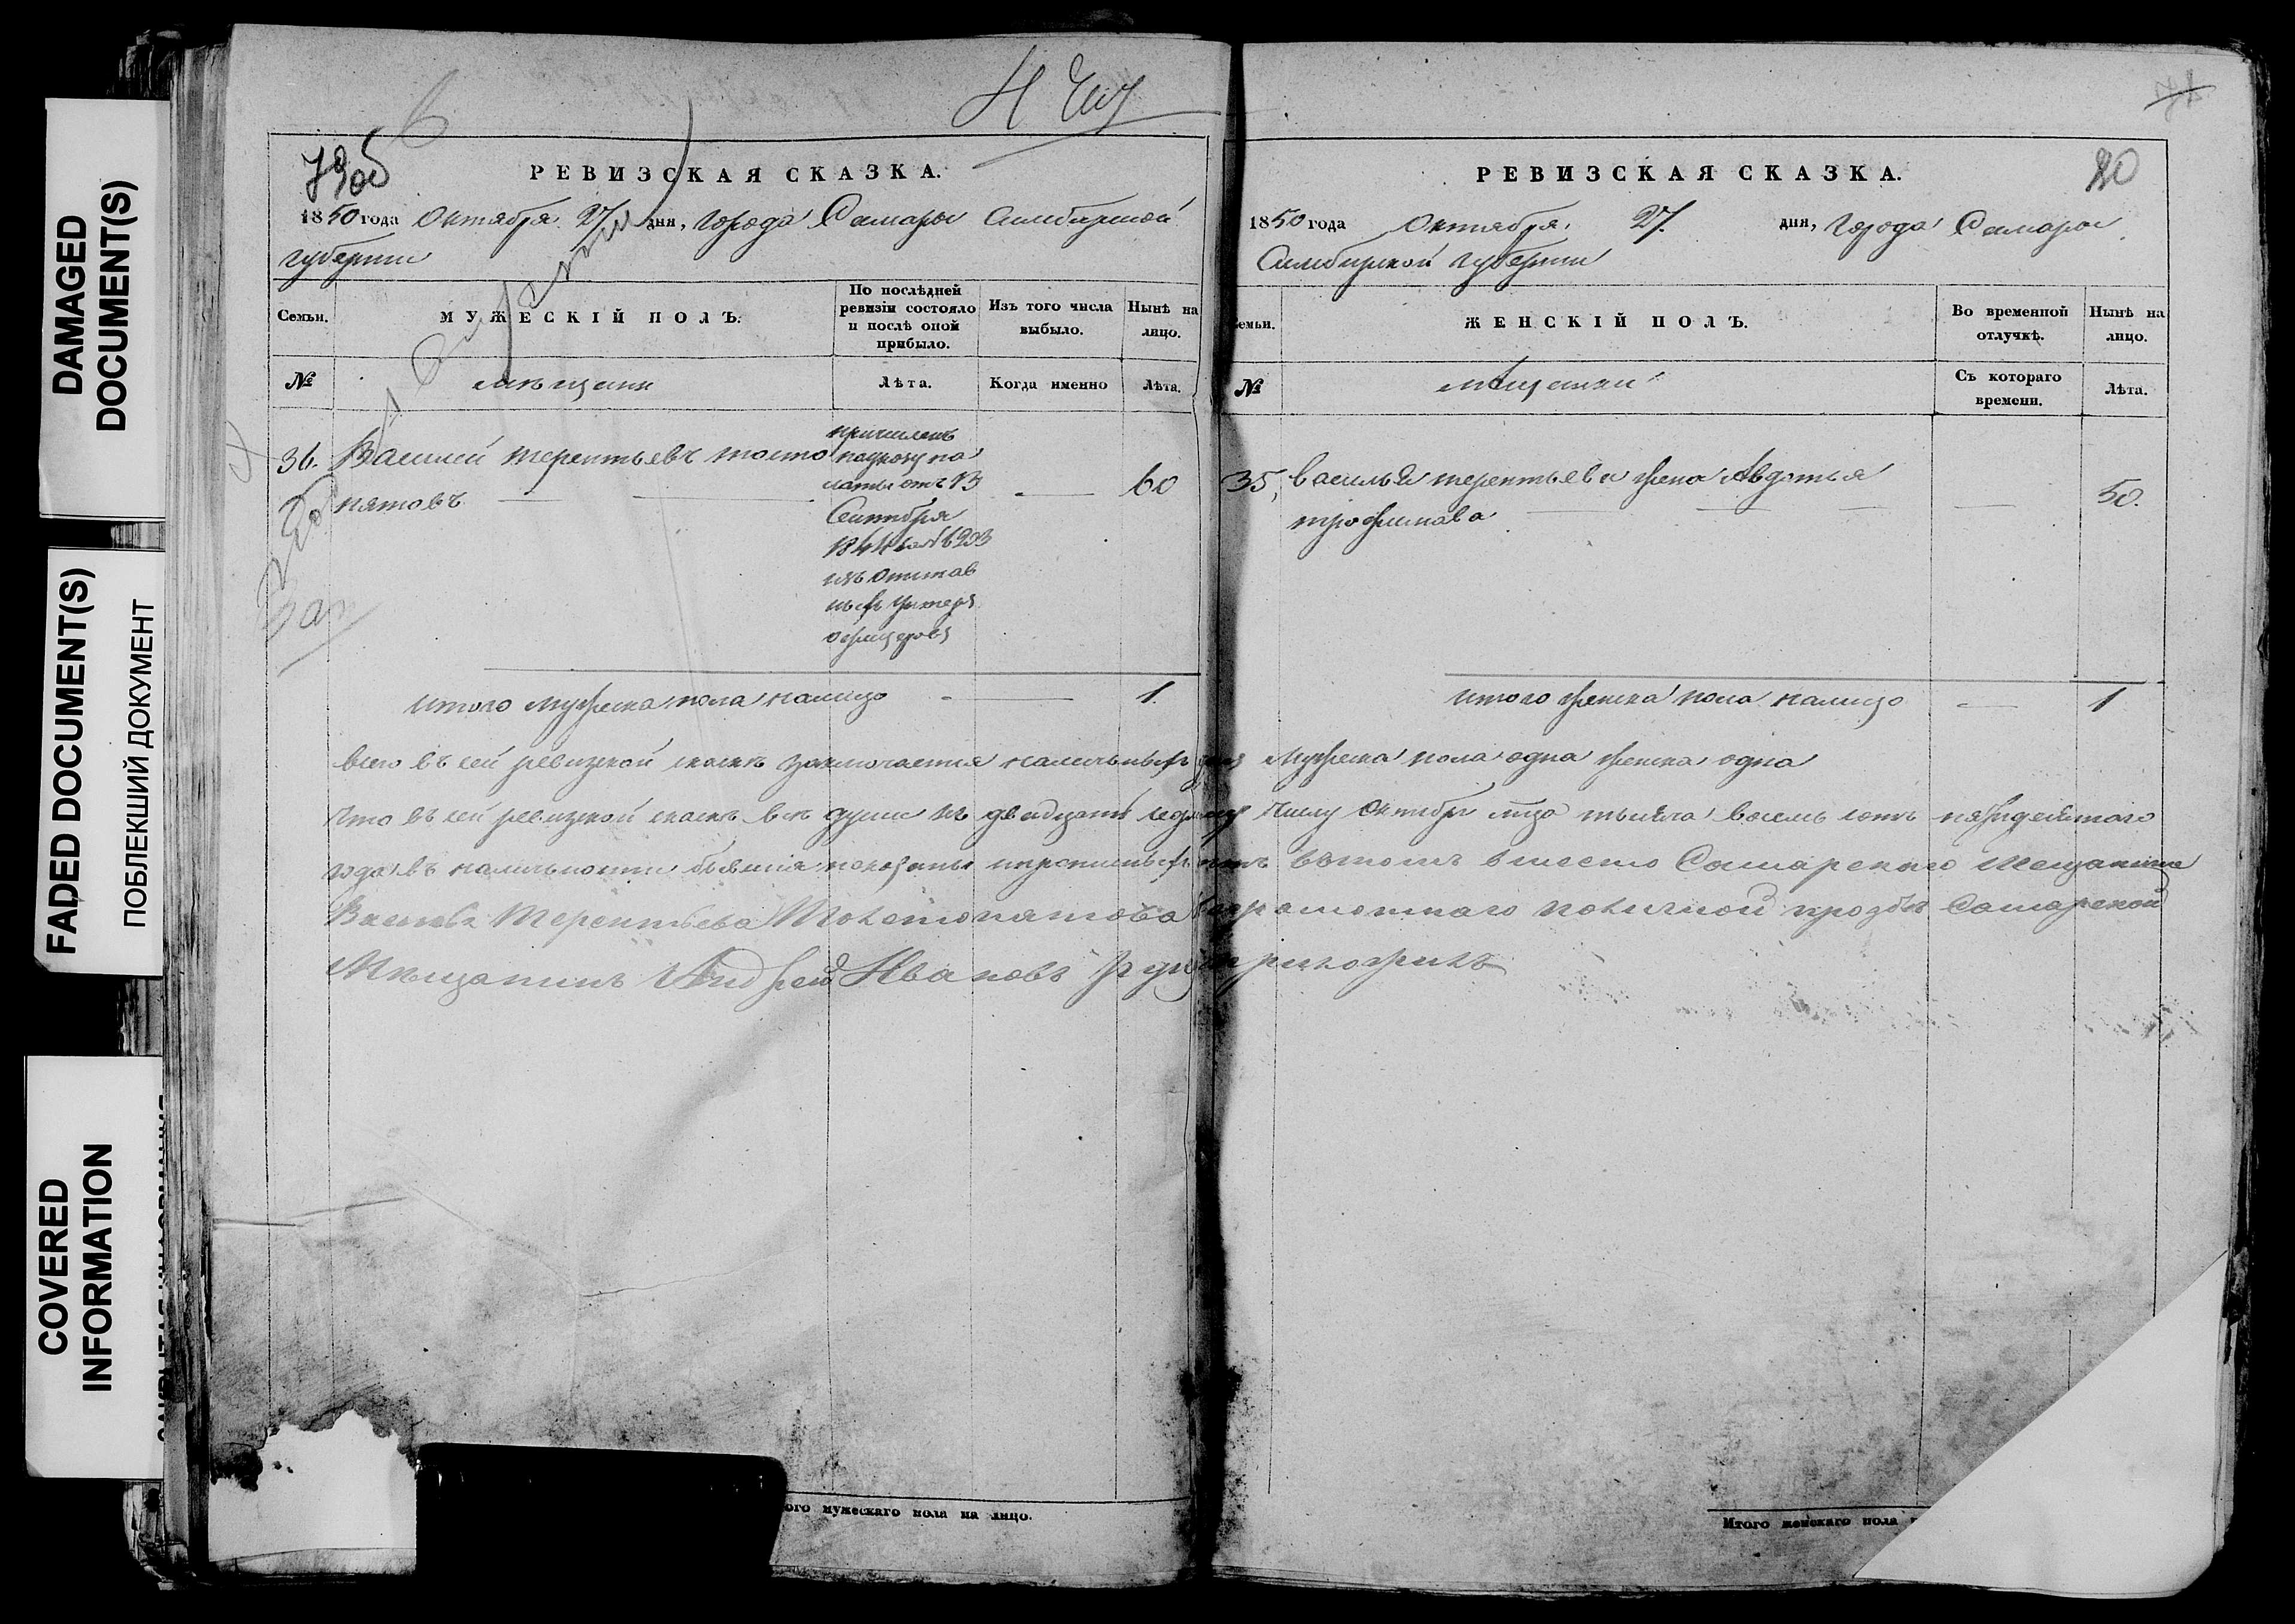 DAMAGED
DOCUMENT(S)
FADED DOCUMENT(S)
ПОБЛЕКШИЙ ДОКУМЕНТ
COVERED
INFORMATION
6
РЕВИЗСКАЯ СКАЗКА.
1850 года Октября 27 дня, города Самары Симбирской
губернии
Семьи.
МУЖЕСКІЙ ПОЛЪ.
По послѣдней
ревизіи состояло
и послѣ оной
прибыло.
Изъ того числа
выбыло.
Нынѣ на
лицо.
№
мещани
Лѣта.
Когда именно
Лѣта.
36. Василей терентьевъ толсто
пятовъ
причисленъ
поуказу па
латы отъ 13
Сентября
1844
изъ отстав
ныхъ унтеръ
офицеровъ
60
итого мужеска пола налицо 1.
20
РЕВИЗСКАЯ СКАЗКА.
1850 года Октября 27. дня, города Самары
Симбирской губернии
ЖЕНСКІЙ ПОЛЪ.
Во временной
отлучкѣ.
Нынѣ на
лицо.
№
мещанки
Съ котораго
времени.
Лѣта.
35, василья терентьева жена Авдотья
трофимава
50.
итого женска пола налицо 1
всего въ сей ревизской сказкѣ заключается наличныхъ мужеска пола одна женска одна
что въ сей ревизской сказкѣ всѣ души къ двадцать седмому числу Октября тысяча восемь сотъ пятидесятого
года въ наличности бывшия показаны и прописныхъ нетъ вътомъ вместо Самарскаго мещанина
Василья Терентьева неграмотнаго поличной прозбѣ Самарской
Мѣщанинъ Андрей Ивановъ руку приложилъ
ого мужескаго пола на лицо.
Итого женскаго пола